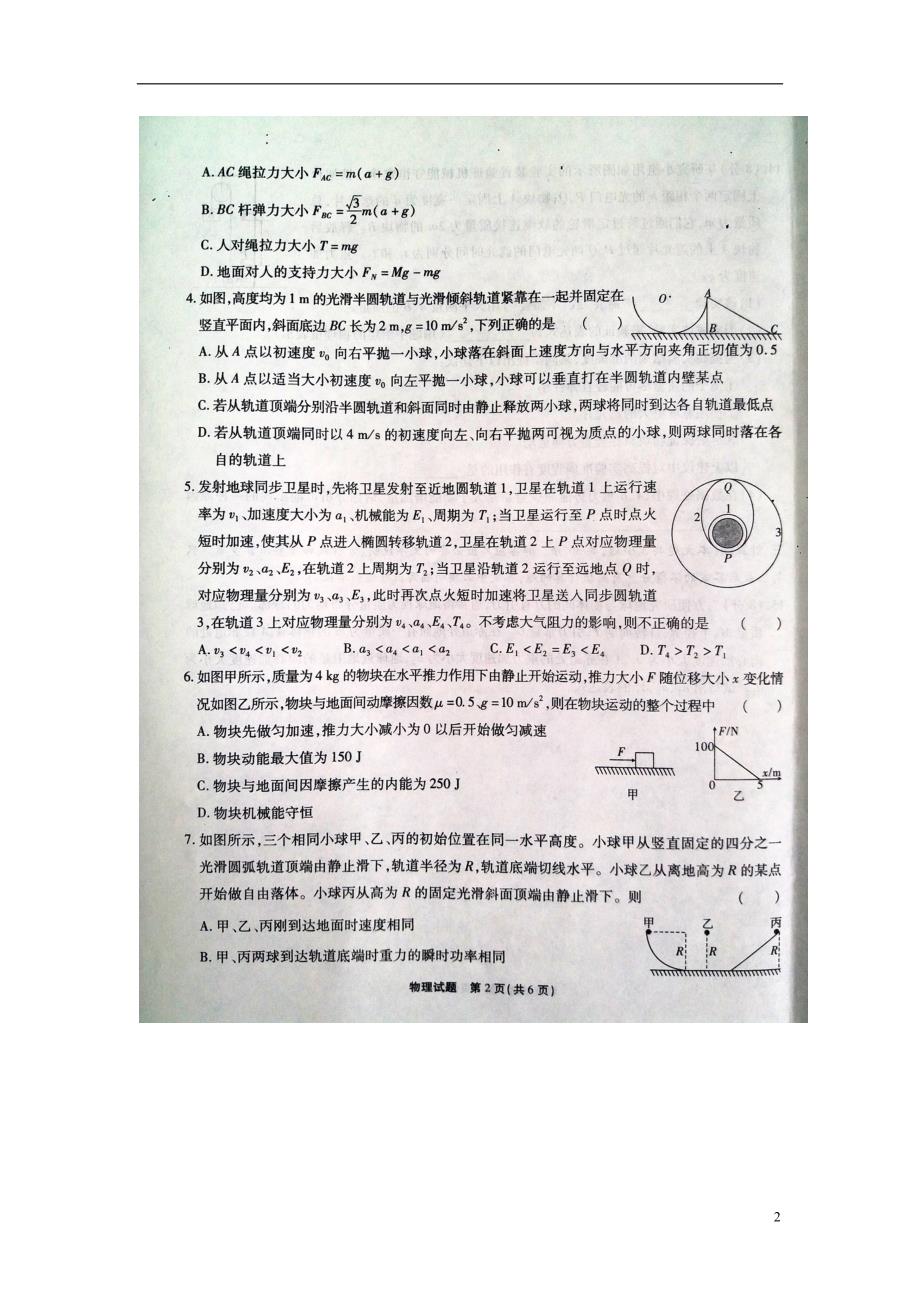 A. AC 绳拉力大小 F_AC = m(a+g)
B. BC 杆弹力大小 F_BC = √3/2 m(a+g)
C. 人对绳拉力大小 T = mg
D. 地面对人的支持力大小 F_N = Mg - mg
4. 如图,高度均为 1 m 的光滑半圆轨道与光滑倾斜轨道紧靠在一起并固定在
竖直平面内,斜面底边 BC 长为 2 m, g = 10 m/s²,下列正确的是 ( )
O A B C
A. 从 A 点以初速度 v₀ 向右平抛一小球,小球落在斜面上速度方向与水平方向夹角正切值为 0.5
B. 从 A 点以适当大小初速度 v₀ 向左平抛一小球,小球可以垂直打在半圆轨道内壁某点
C. 若从轨道顶端分别沿半圆轨道和斜面同时由静止释放两小球,两球将同时到达各自轨道最低点
D. 若从轨道顶端同时以 4 m/s 的初速度向左、向右平抛两可视为质点的小球,则两球同时落在各
自的轨道上
5. 发射地球同步卫星时,先将卫星发射至近地圆轨道 1,卫星在轨道 1 上运行速
率为 v₁、加速度大小为 a₁、机械能为 E₁、周期为 T₁;当卫星运行至 P 点时点火
短时加速,使其从 P 点进入椭圆转移轨道 2,卫星在轨道 2 上 P 点对应物理量
分别为 v₂、a₂、E₂,在轨道 2 上周期为 T₂;当卫星沿轨道 2 运行至远地点 Q 时,
对应物理量分别为 v₃、a₃、E₃,此时再次点火短时加速将卫星送入同步圆轨道
3,在轨道 3 上对应物理量分别为 v₄、a₄、E₄、T₄。不考虑大气阻力的影响,则不正确的是 ( )
Q 1 2 3 P
A. v₃ < v₄ < v₁ < v₂ B. a₃ < a₄ < a₁ < a₂ C. E₁ < E₂ = E₃ < E₄ D. T₄ > T₂ > T₁
6. 如图甲所示,质量为 4 kg 的物块在水平推力作用下由静止开始运动,推力大小 F 随位移大小 x 变化情
况如图乙所示,物块与地面间动摩擦因数 μ = 0.5、g = 10 m/s²,则在物块运动的整个过程中 ( )
A. 物块先做匀加速,推力大小减小为 0 以后开始做匀减速
B. 物块动能最大值为 150 J
C. 物块与地面间因摩擦产生的内能为 250 J
D. 物块机械能守恒
F 甲
F/N 100 0 5 x/m 乙
7. 如图所示,三个相同小球甲、乙、丙的初始位置在同一水平高度。小球甲从竖直固定的四分之一
光滑圆弧轨道顶端由静止滑下,轨道半径为 R,轨道底端切线水平。小球乙从离地高为 R 的某点
开始做自由落体。小球丙从高为 R 的固定光滑斜面顶端由静止滑下。则 ( )
A. 甲、乙、丙刚到达地面时速度相同
B. 甲、丙两球到达轨道底端时重力的瞬时功率相同
甲 乙 丙
R R R
物理试题 第 2 页(共 6 页)
2